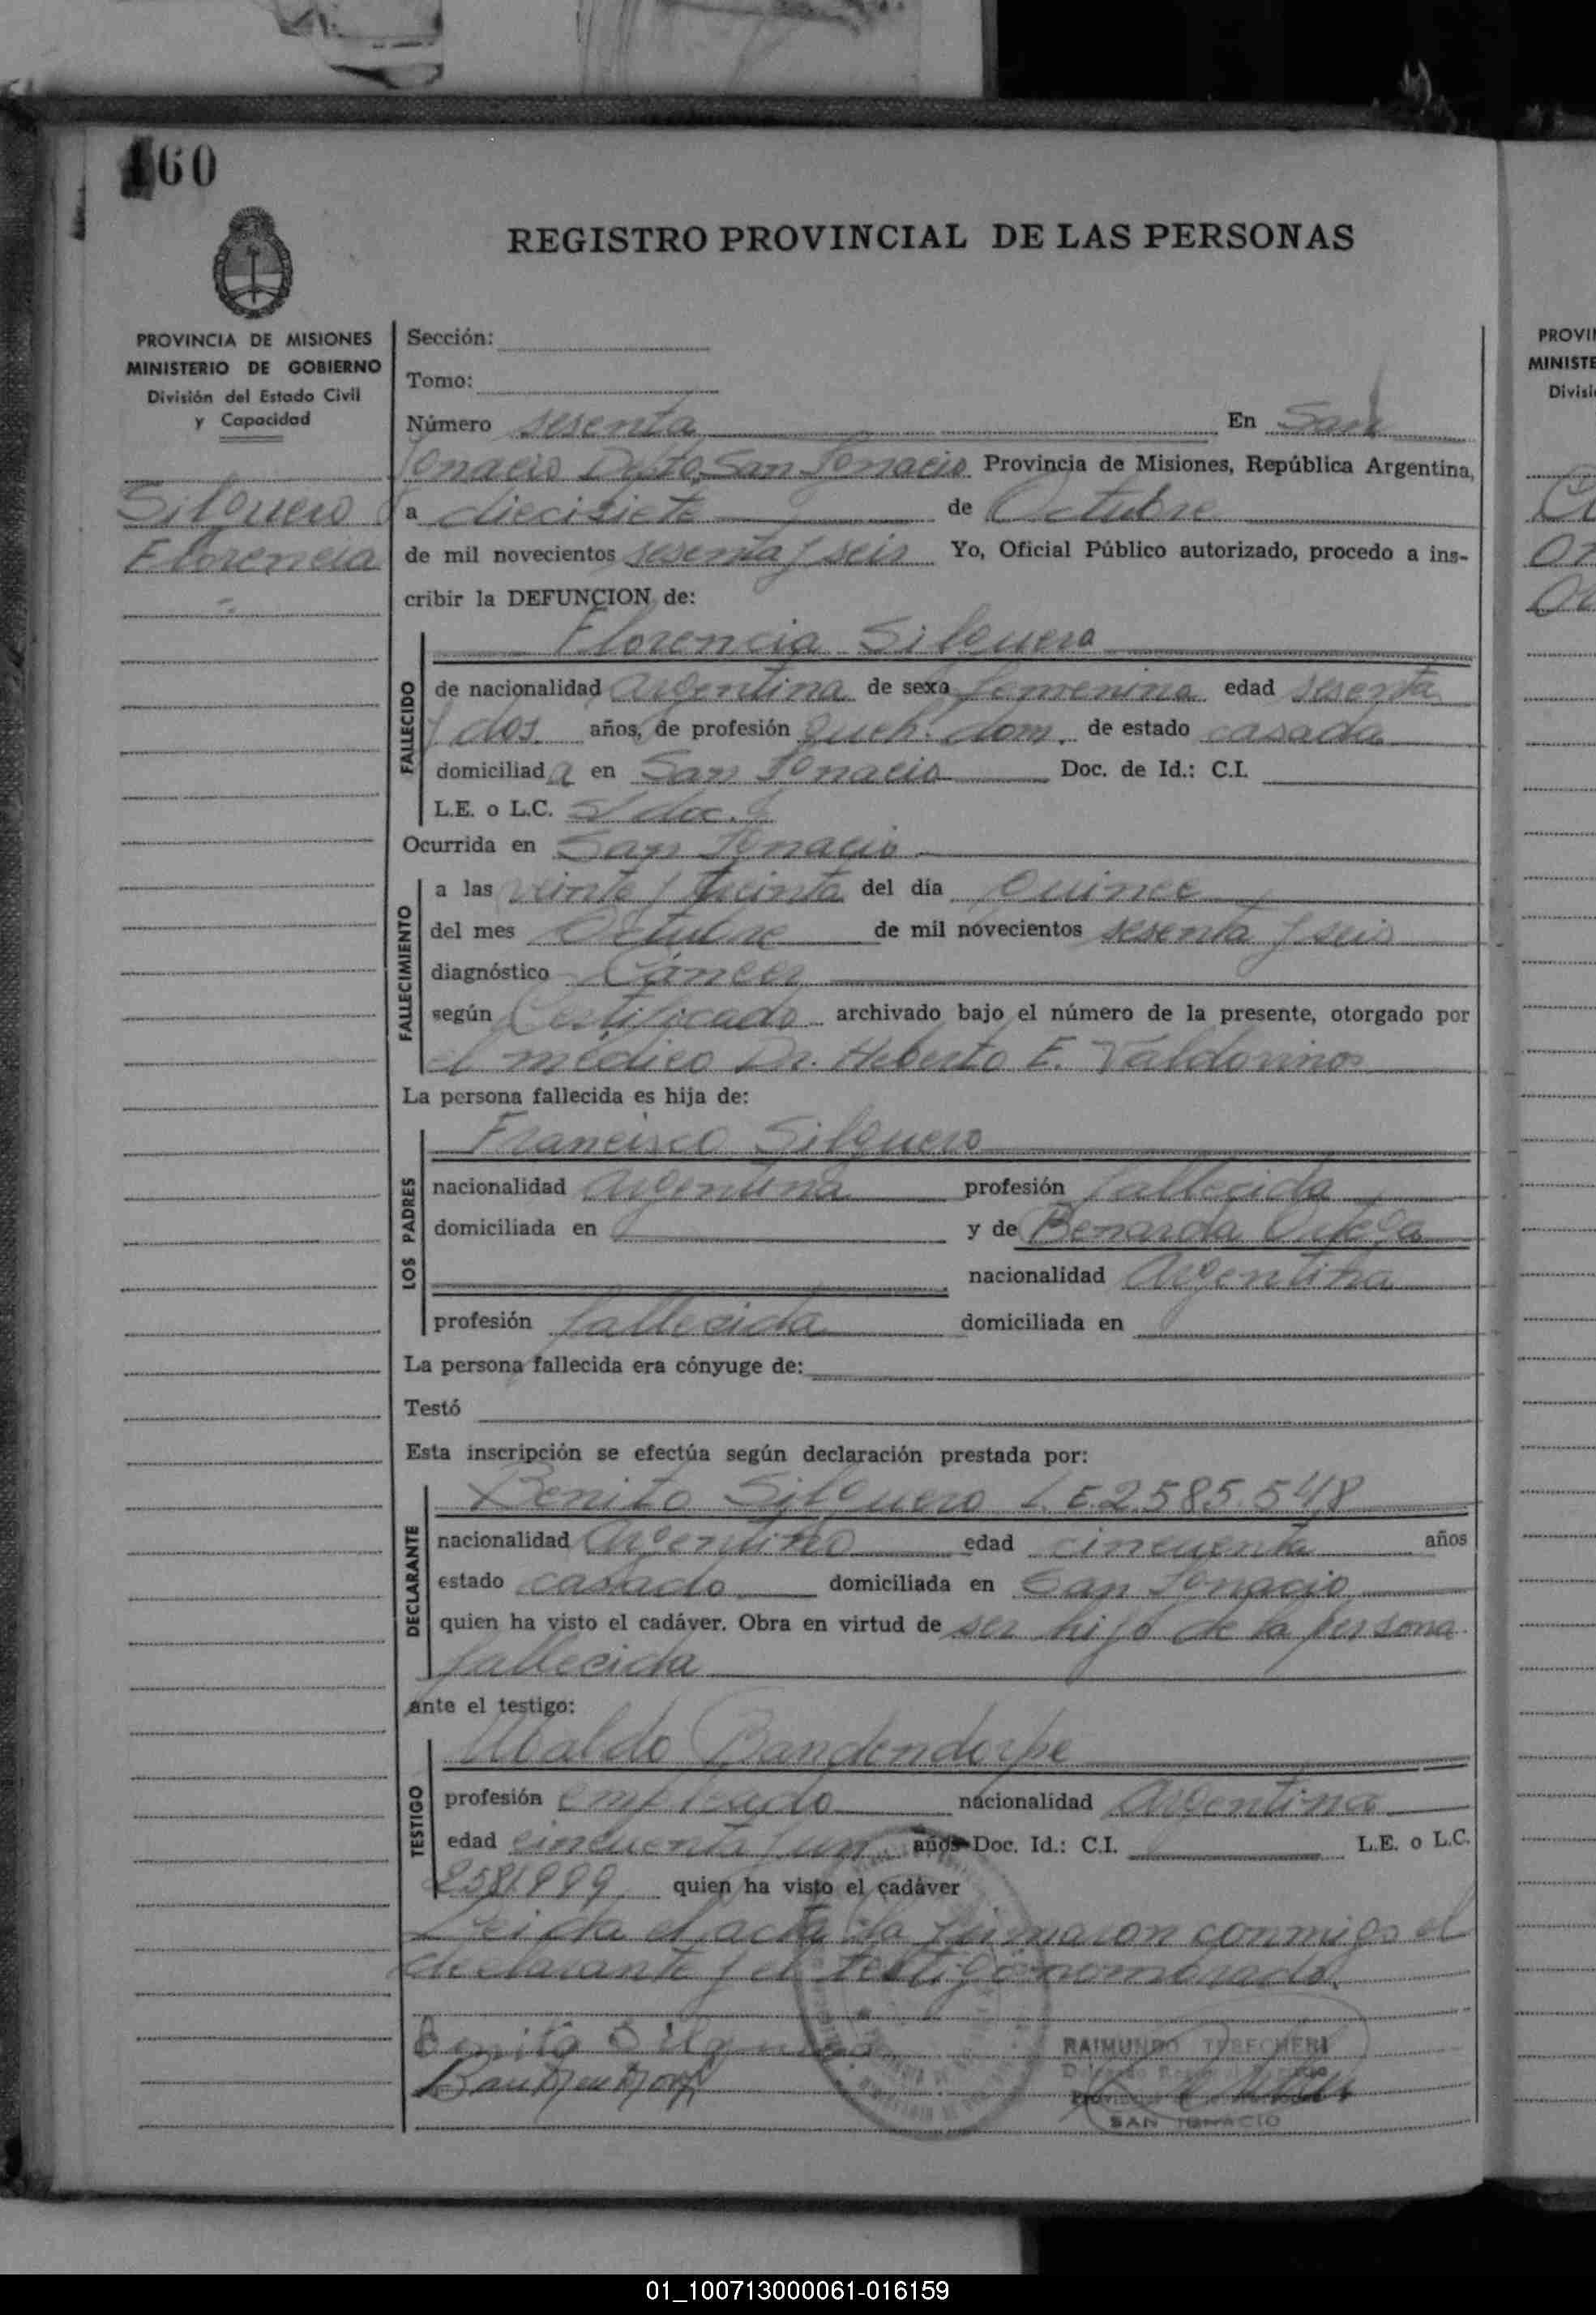 60
REGISTRO PROVINCIAL DE LAS PERSONAS
PROVINCIA DE MISIONES
MINISTERIO DE GOBIERNO
División del Estado Civil
y Capacidad
Silguero
Florencia
Sección:
Tomo:
Número sesenta En San
Ignacio Dpto. San Ignacio Provincia de Misiones, República Argentina,
a diecisiete de Octubre
de mil novecientos sesenta y seis Yo, Oficial Público autorizado, procedo a ins-
cribir la DEFUNCION de:
Florencia Silguero
FALLECIDO
de nacionalidad argentina de sexo femenino edad sesenta
y dos años, de profesión queh. dom. de estado casada
domiciliada en San Ignacio Doc. de Id.: C.I.
L.E. o L.C. S/ doc.
Ocurrida en San Ignacio
FALLECIMIENTO
a las veinte y treinta del día quince
del mes Octubre de mil novecientos sesenta y seis
diagnóstico Cáncer
según Certificado archivado bajo el número de la presente, otorgado por
el médico Dr. Heberto E. Valdovinos
La persona fallecida es hija de:
LOS PADRES
Francisco Silguero
nacionalidad Argentina profesión fallecida
domiciliada en y de Benarda Ortega
nacionalidad Argentina
profesión fallecida domiciliada en
La persona fallecida era cónyuge de:
Testó
Esta inscripción se efectúa según declaración prestada por:
DECLARANTE
Benito Silguero L.E. 2.585.548
nacionalidad Argentino edad cincuenta años
estado casado domiciliada en San Ignacio
quien ha visto el cadáver. Obra en virtud de ser hijo de la persona
fallecida
ante el testigo:
TESTIGO
Ubaldo Bandendorpe
profesión empleado nacionalidad Argentina
edad cincuenta y un años Doc. Id.: C.I. L.E. o L.C.
2581.999 quien ha visto el cadáver
Leida el acta la firmaron conmigo el
declarante y el testigo nombrado.
Benito Silguero
RAIMUNDO
SAN IGNACIO
PROVI
MINISTE
Divisi
01_100713000061-016159